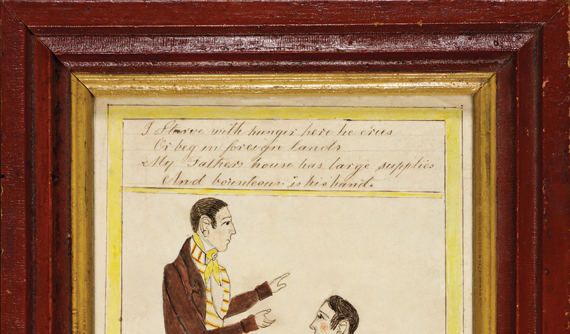 I Starve with hunger here he cries
Or beg in foreign lands
My Fathers house has large supplies
And bounteous is his hand.